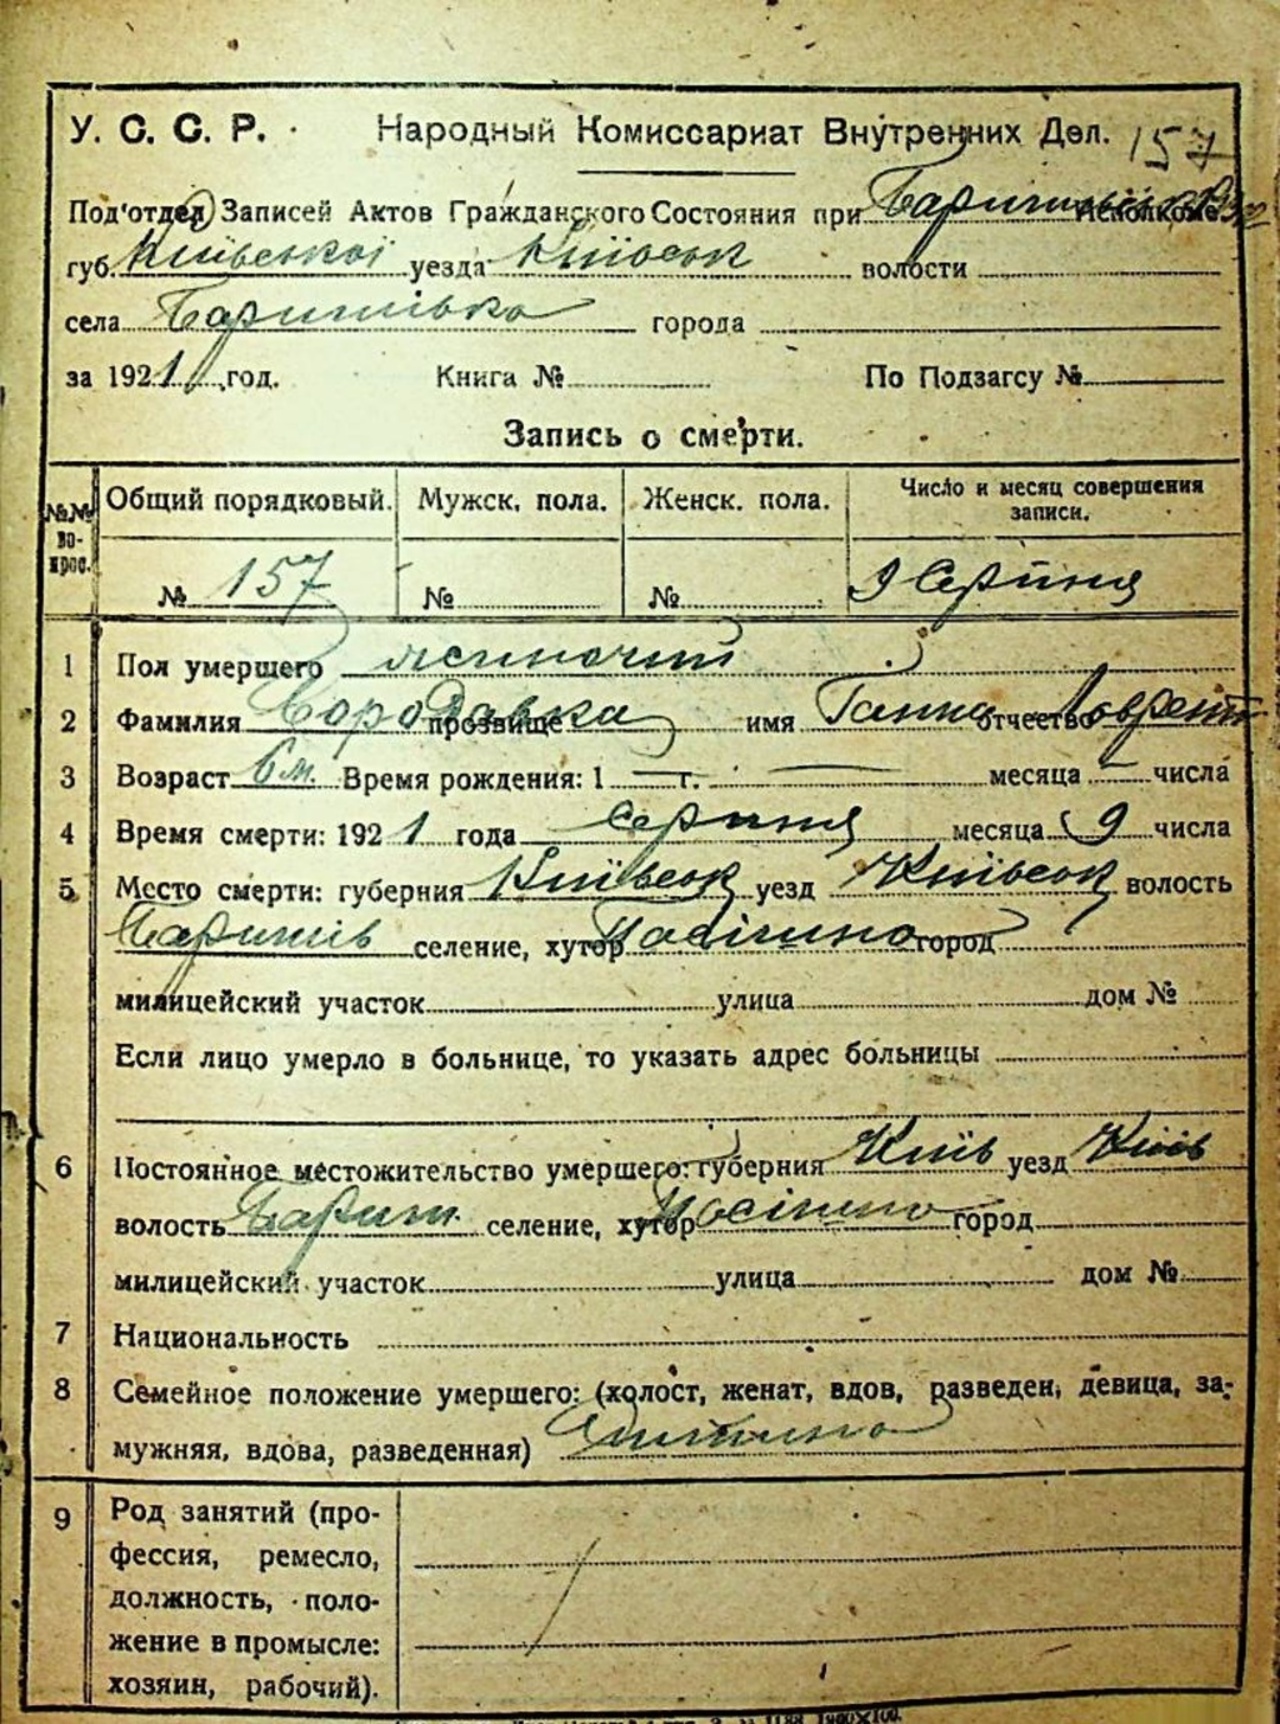 У. С. С. Р. Народный Комиссариат Внутренних Дел. 157
Под'отдел Записей Актов Гражданского Состояния при Исполкоме
губ. Київської уезда Київськ волости
села Баришівка города
за 1921 год. Книга № По Подзагсу №
Запись о смерти.
№№ вопрос. Общий порядковый. Мужск. пола. Женск. пола. Число и месяц совершения записи.
№ 157 № № 9 Серпня
1 Пол умершего жиночий
2 Фамилия Бородавка прозвище имя Ганна отчество Лаврент
3 Возраст 6 м. Время рождения: 1 — г. — месяца — числа
4 Время смерти: 1921 года Серпня месяца 9 числа
5 Место смерти: губерния Київськ уезд Київськ волость
Баришів селение, хутор город
милицейский участок улица дом №
Если лицо умерло в больнице, то указать адрес больницы
6 Постоянное местожительство умершего: губерния Київ уезд Київ
волость Бариш. селение, хутор город
милицейский участок улица дом №
7 Национальность
8 Семейное положение умершего: (холост, женат, вдов, разведен, девица, за-
мужняя, вдова, разведенная) Дитина
9 Род занятий (про-
фессия, ремесло,
должность, поло-
жение в промысле:
хозяин, рабочий).